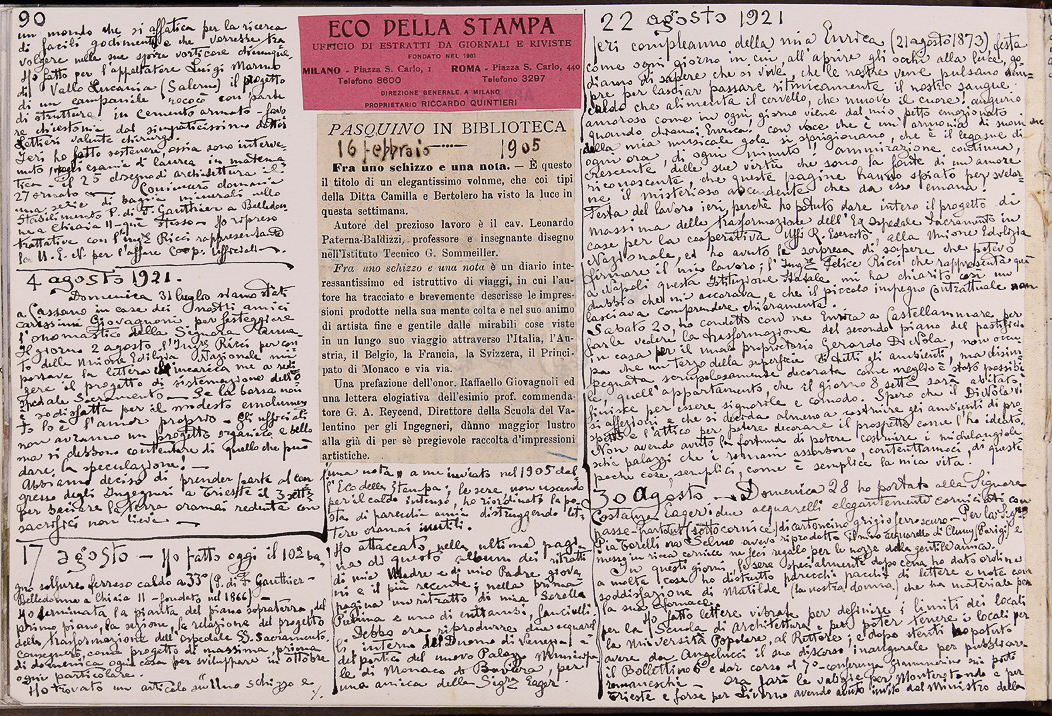 90
un mondo che si affatica per la ricerca
di facili godimenti e che vorrebbe tra
volgere nelle sue spire vorticose chiunque.
Ho fatto per l'appaltatore Luigi
di Vallo Lucania (Salerno) il progetto
di un campanile rococò con parte
di strutture in cemento armato
re chiestomi dal simpaticissimo dottor
valente chirurgo.
Ieri ho fatto sostenere, ossia sono interve-
nuto, negli esami di laurea in matema
tica - il 25 disegno di architettura il
27 ornato - Comincerò domani
una serie di bagni minerali nello
Stabilimento P. di F. Gauthier a Belledon
na a Chiaia II que stesso - Ho ripreso
trattative con l'ingr Ricci rappresentante
la U.E.N. per l'affare Coop. Ufficiali -
4 agosto 1921
Domenica 31 luglio siamo stati
a Cassano in casa dei nostri amici
carissimi Giovagnoni per festeggiare
l'onomastico della Signora Anna
Il giorno 2 agosto l'Ingr Ricci per con
to della Nuova Edilizia Nazionale mi
portava la lettera d'incarico a redi
gere il progetto di sistemazione dell'O
spedale Sacramento - Se la borsa non
è sodisfatta per il modesto emolumen
to lo è l'amor proprio - Gli ufficiali
non avranno un progetto organico e bello
ma si debbono contentare di quello che può
dare, la speculazione! -
Abbiamo deciso di prender parte al con
gresso degli Ingegneri a Trieste il 3 sette
per baciare la terra oramai redenta con
sacrifici non lievi -
17 agosto - Ho fatto oggi il 10° ba
gno sulfureo ferroso caldo a 33° (P. di F. Gauthier -
Belledonna a Chiaia II - fondato nel 1866)
Ho terminata la pianta del piano sopraterra, del
primo piano, la sezione, la relazione del progetto
della trasformazione dell'Ospedale SS. Sacramento,
consegnerò, come progetto di massima, prima
di domenica ogni cosa per sviluppare in ottobre
ogni particolare.
Ho trovato un articolo sull'Uno schizzo e
ECO DELLA STAMPA
UFFICIO DI ESTRATTI DA GIORNALI E RIVISTE
FONDATO NEL 1901
MILANO - Piazza S. Carlo, 1 ROMA - Piazza S. Carlo, 440
Telefono 8600 Telefono 3297
DIREZIONE GENERALE A MILANO
PROPRIETARIO RICCARDO QUINTIERI
PASQUINO IN BIBLIOTECA
16 febbraio 1905
Fra uno schizzo e una nota. — È questo
il titolo di un elegantissimo volume, che coi tipi
della Ditta Camilla e Bertolero ha visto la luce in
questa settimana.
Autore del prezioso lavoro è il cav. Leonardo
Paterna-Baldizzi, professore e insegnante disegno
nell'Istituto Tecnico G. Sommeiller.
Fra uno schizzo e una nota è un diario inte-
ressantissimo ed istruttivo di viaggi, in cui l'au-
tore ha tracciato e brevemente descrisse le impres-
sioni prodotte nella sua mente colta e nel suo animo
di artista fine e gentile dalle mirabili cose viste
in un lungo suo viaggio attraverso l'Italia, l'Au-
stria, il Belgio, la Francia, la Svizzera, il Princi-
pato di Monaco e via via.
Una prefazione dell'onor. Raffaello Giovagnoli ed
una lettera elogiativa dell'esimio prof. commenda-
tore G. A. Reycend, Direttore della Scuola del Va-
lentino per gli Ingegneri, dànno maggior lustro
alla già di per sè pregievole raccolta d'impressioni
artistiche.
una nota" a me inviato nel 1905 dal
l'Eco della Stampa; le sere, non uscendo
per il caldo intenso, ho riordinato la po
sta di parecchi anni, distruggendo let
tere oramai inutili.
Ho attaccato nella ultima pagi-
na di questo album due ritratti
di mia Madre e di mio Padre, giova
ni e il più recente; nella prima
pagina un ritratto di mia Sorella
e uno di entrambi, fanciulli.
Debbo ora riprodurre due acquarelli
l'interno del Duomo di Venezia
del portico del nuovo Palazzo Municipa
le di Monaco di Baviera, per
una amica della Sigra Eager.
22 agosto 1921
Ieri compleanno della mia Enrica (21 agosto 1873) festa
come ogni giorno in cui, all'aprire gli occhi alla luce, go
diamo di sapere che si vive, che le nostre vene pulsano sem-
pre per lasciar passare ritmicamente il nostro sangue
caldo che alimenta il cervello, che muove il cuore! augurio
amoroso come in ogni giorno viene dal mio petto emozionato
quando chiamo: Enrica! con voce che è un'armonia di suoni che
dalla mia musicale gola si sprigionano, che è il legame di
ogni ora, di ogni minuto - ammirazione continua,
crescente, delle sue virtù che sono la fonte di un'amore
riconoscente che queste pagine hanno spiato per svelar-
ne il misterioso ascendente che da esso emana.
Festa del lavoro ieri, perché ho potuto dare intero il progetto di
massima della trasformazione dell'Ex Ospedale Sacramento in
case per la cooperativa Uffli R. Esercito, alla Unione Edilizia
Nazionale, ed ho avuto la sorpresa di sapere che potevo
firmare il mio lavoro; l'Ingr Felice Ricci che rappresenta qui
a Napoli questa Istituzione Statale, mi ha chiarito così un
dubbio che mi accorava, e che il piccolo impegno contrattuale non
lasciava comprendere chiaramente.
Sabato 20, ho condotto con me Enrica a Castellammare, per
farle vedere la trasformazione del secondo piano del pastificio
in casa per il muto proprietario Gerardo Di Nola, non occu
pa che un terzo della superficie di tutti gli ambienti, ma disim-
pegnata, scrupolosamente decorata come meglio è stato possibi
le, quell'appartamento, che il giorno 8 sette sarà abitato,
finisce per essere signorile e comodo. Spero che il Di Nola vi
si affezioni e che si decida almeno a costruire gli ambienti di pro
spetto e l'attico per potere decorare il prospetto come l'ho ideato
Non avendo avuto la fortuna di potere costruire i michelangiole
schi palazzi che i romani assorbono, contentiamoci, di queste
poche cose, semplici, come è semplice la mia vita!
30 agosto - Domenica 28 ho portato alla Signora
Costanza Eager i due acquarelli elegantemente corniciati con
passe-partout (sotto cornice) di cartoncino grigio ferro scuro - Per la Sigra
Pia Borelli ora avevo riprodotto il mio acquarello di Cluny (Parigi) e
con una ricca cornice ne feci regalo per le nozze della gentile amica.
In questi giorni, la sera specialmente dopo cena, ho dato ordine
a molte cose, ho distrutto parecchi pacchi di lettere e note con
soddisfazione di Matilde (la nostra donna) che ha materiale per
la sua fornace!
Ho fatto lettere vibrate per definire i limiti dei locali
per la Scuola di Architettura e per poter tenere i locali per
la Università Popolare, al Rettore; e dopo stenti ho potuto
avere da Angelucci il suo discorso inaugurale per pubblicare
il Bollettino 6° e dar corso al 7° - conferenza Giammarino sui poeti
romaneschi - Ora farò la valigia per Monterotondo e per
Trieste e forse per Livorno avendo avuto invito dal Ministro della